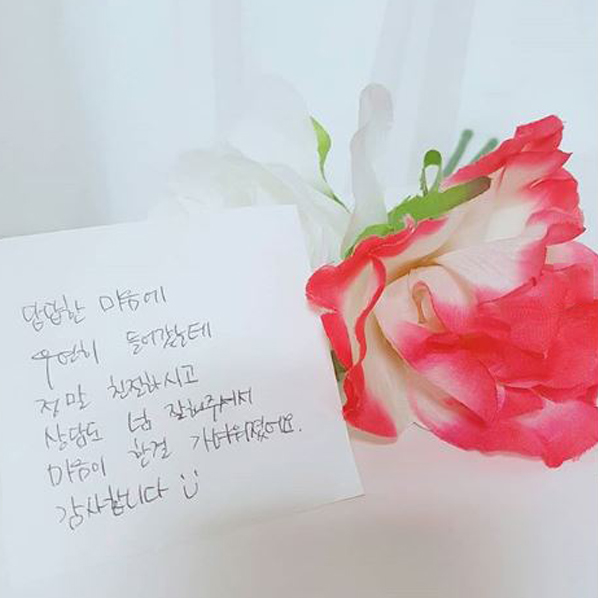 답답한 마음에
우연히 들어갔는데
정말 친절하시고
상담도 넘 잘해주셔서
마음이 한결 가벼워졌어요.
감사합니다 :)